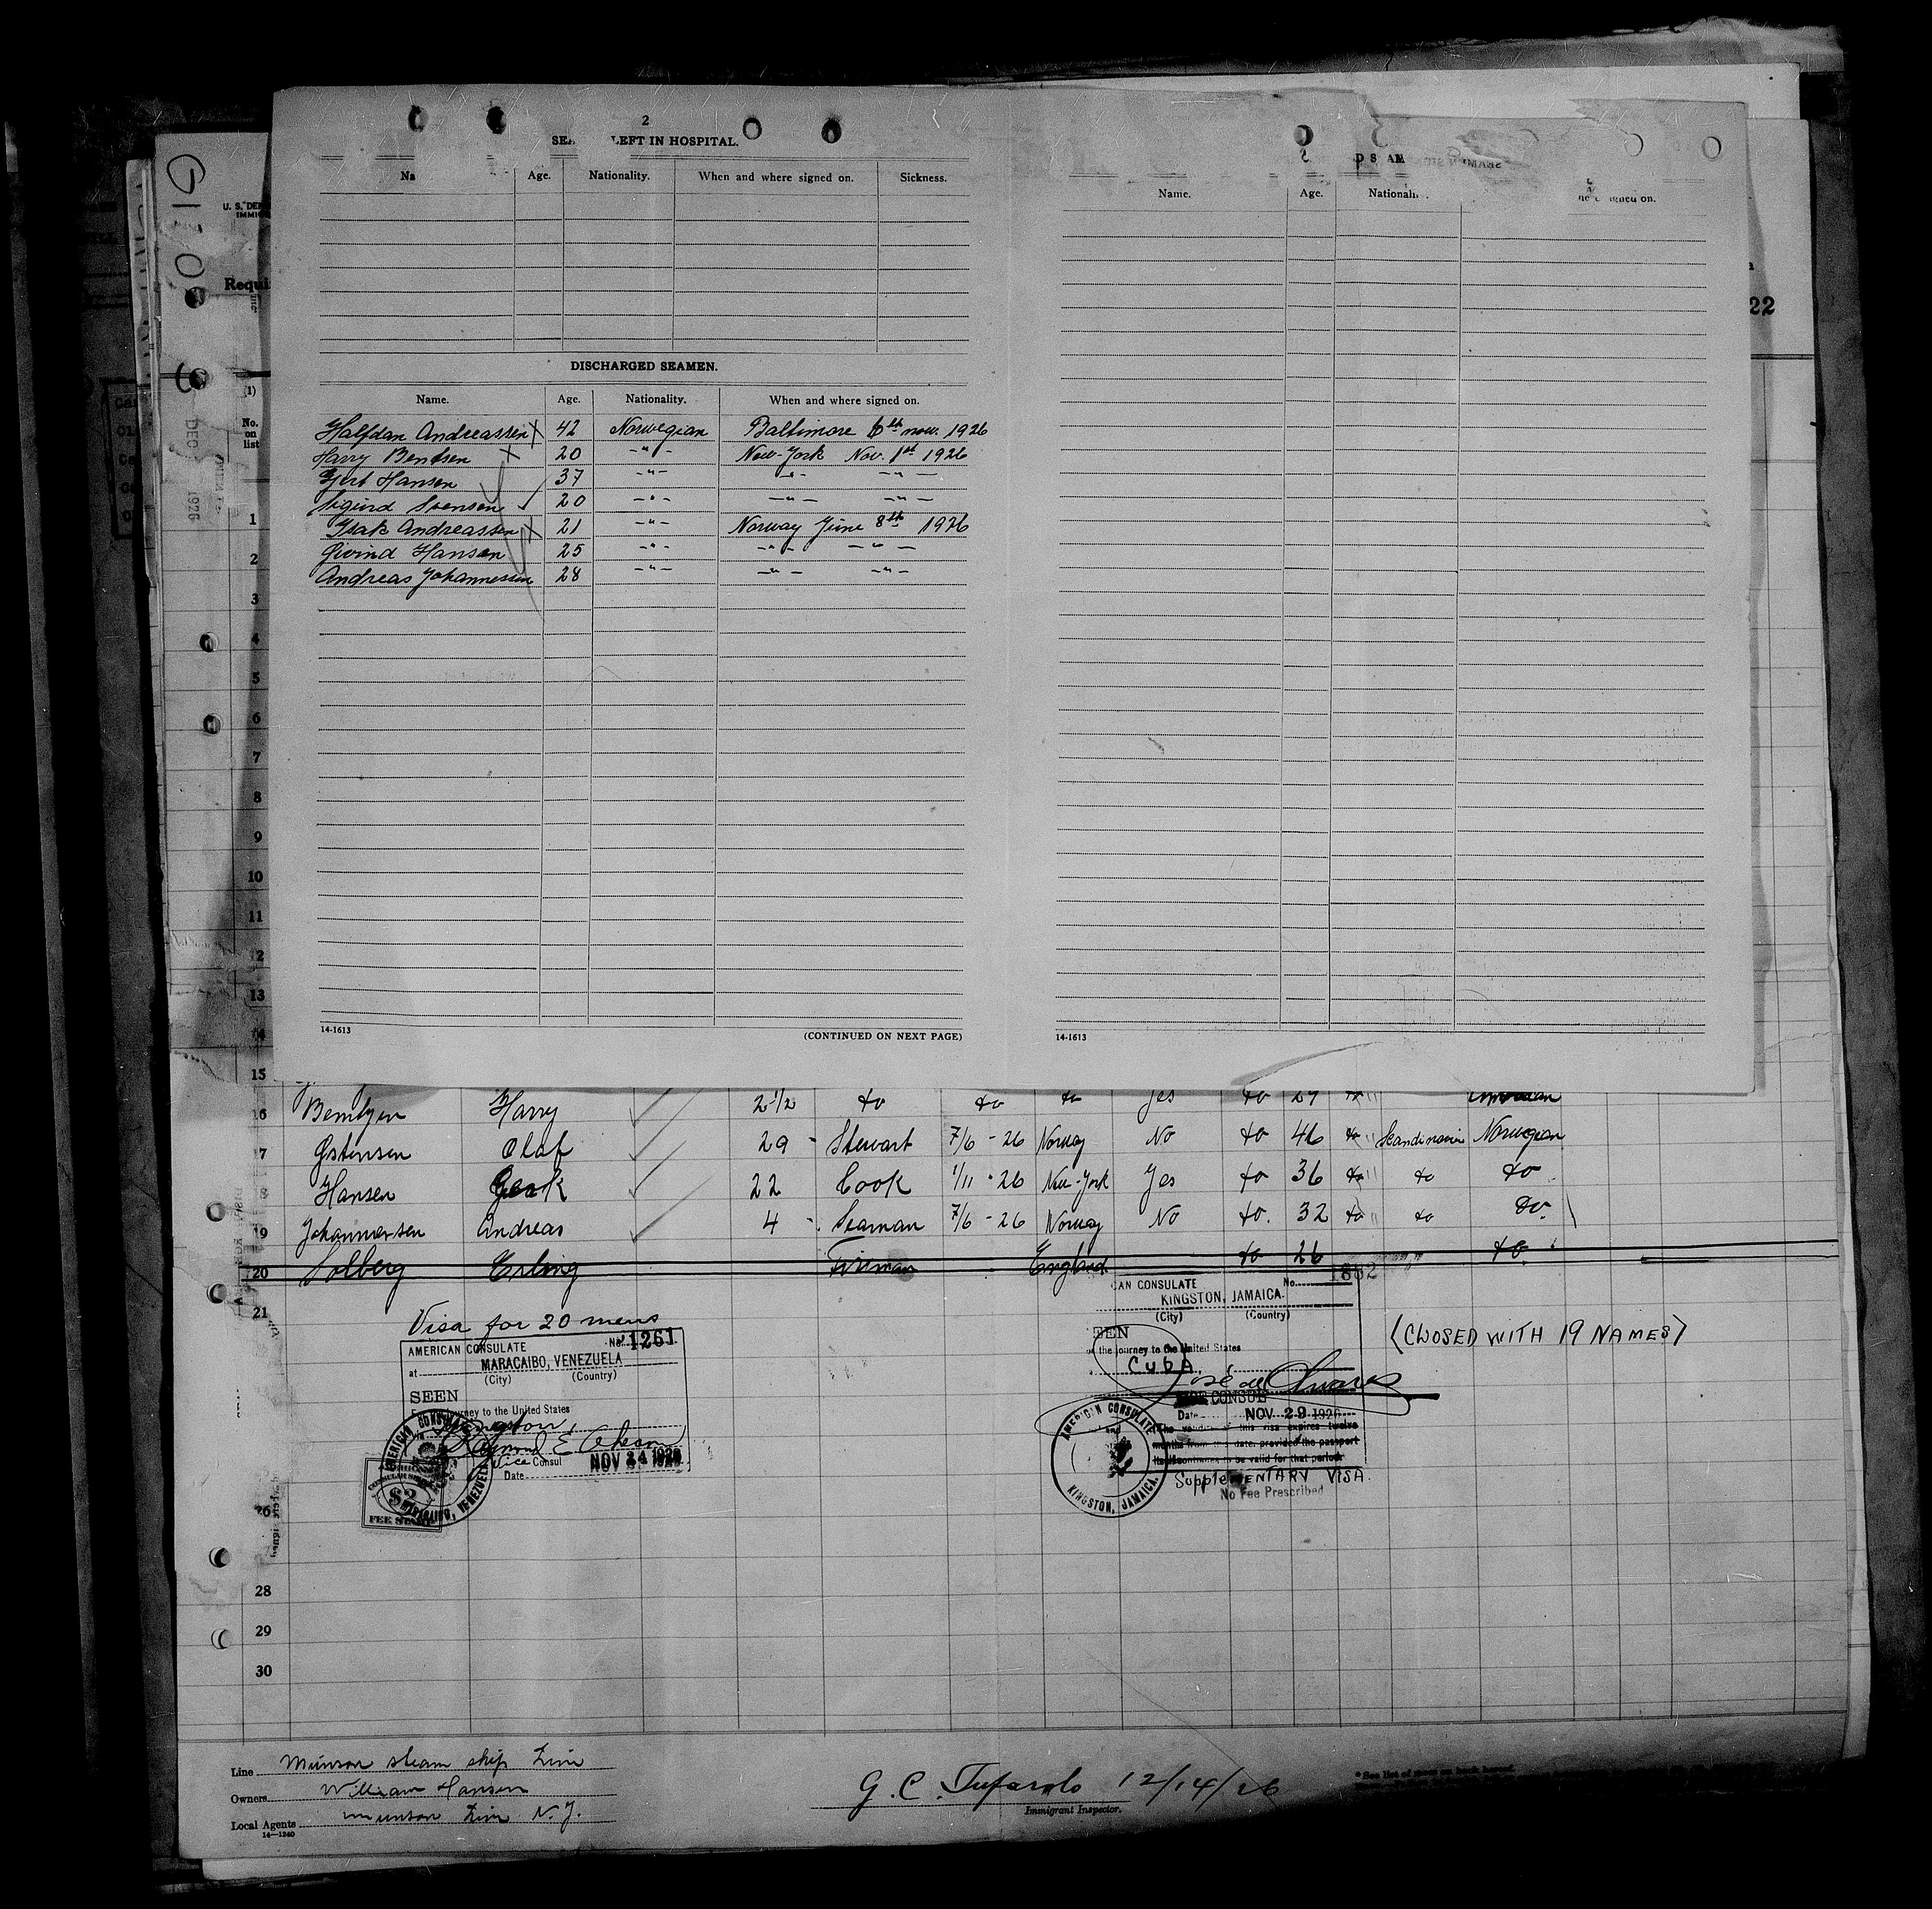 2
LEFT IN HOSPITAL.
Age. Nationality. When and where signed on. Sickness.
DISCHARGED SEAMEN.
Name. Age. Nationality. When and where signed on.
Halfdan Andreassen X 42 Norwegian Baltimore 6th nov. 1926
Harry Bentsen X 20 -"- New-York Nov. 1st 1926
Gert Hansen 37 -"- -"- -"-
Sigurd Svensen 20 -"- -"- -"-
Isak Andreassen X 21 -"- Norway June 8th 1926
Eivind Hansen 25 -"- -"- -"-
Andreas Johannessen 28 -"- -"- -"-
14-1613 (CONTINUED ON NEXT PAGE)
Name. Age.
14-1613
U. S. DEP
IMMIG
Requi
22
(1)
No.
on
list
DEC 1926
1
2
3
4
5
6
7
8
9
10
11
12
13
14
15
16 Bentzen Harry 2 1/2 do do do Yes do 27
17 Østensen Olaf 29 - Stewart 7/6 - 26 Norway No do 46 do Skandinavier Norwegian
18 Hansen 22 Cook 1/11 - 26 New-York Yes do 36 do do do
19 Johannessen Andreas 4 - Seaman 7/6 - 26 Norway No do. 32 do do do
20 Solberg Erling Fireman England do 26 do
21
Visa for 20 mens
AMERICAN CONSULATE No. 1261
at MARACAIBO, VENEZUELA
(City) (Country)
SEEN
journey to the United States
Kingston,
Vice Consul
Date NOV 24 1926
AMERICAN CONSULATE
$2
FEE STAMP
CAN CONSULATE No. 1862
KINGSTON, JAMAICA.
(City) (Country)
SEEN
the journey to the United States
CUBA
José de Olivares
CONSUL
Date NOV 29 1926
The validity of this visa expires twelve
months from this date, provided the passport
continues to be valid for that period
SUPPLEMENTARY VISA.
No Fee Prescribed
AMERICAN CONSULATE
KINGSTON, JAMAICA.
(CLOSED WITH 19 NAMES)
26
28
29
30
Line Munson steam ship Line
Owners William Hansen
Local Agents Munson Line N.Y.
14-1240
G. C. Tufarolo 12/14/26
Immigrant Inspector.